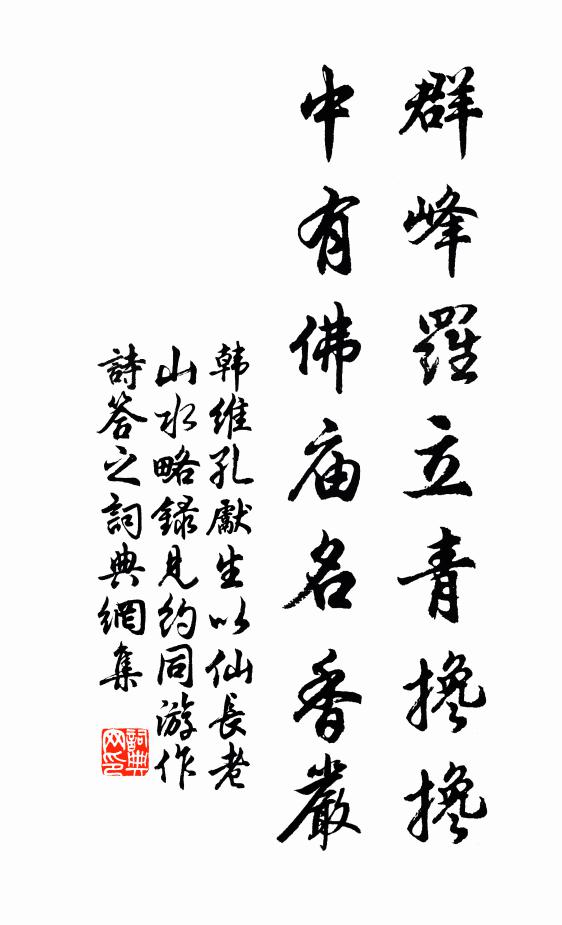 群峰羅立青攙攙
中有佛庙名香嚴
韩維孔獻生以仙長老
山水略録見約同游作
詩答之詞典網集
詞典网印